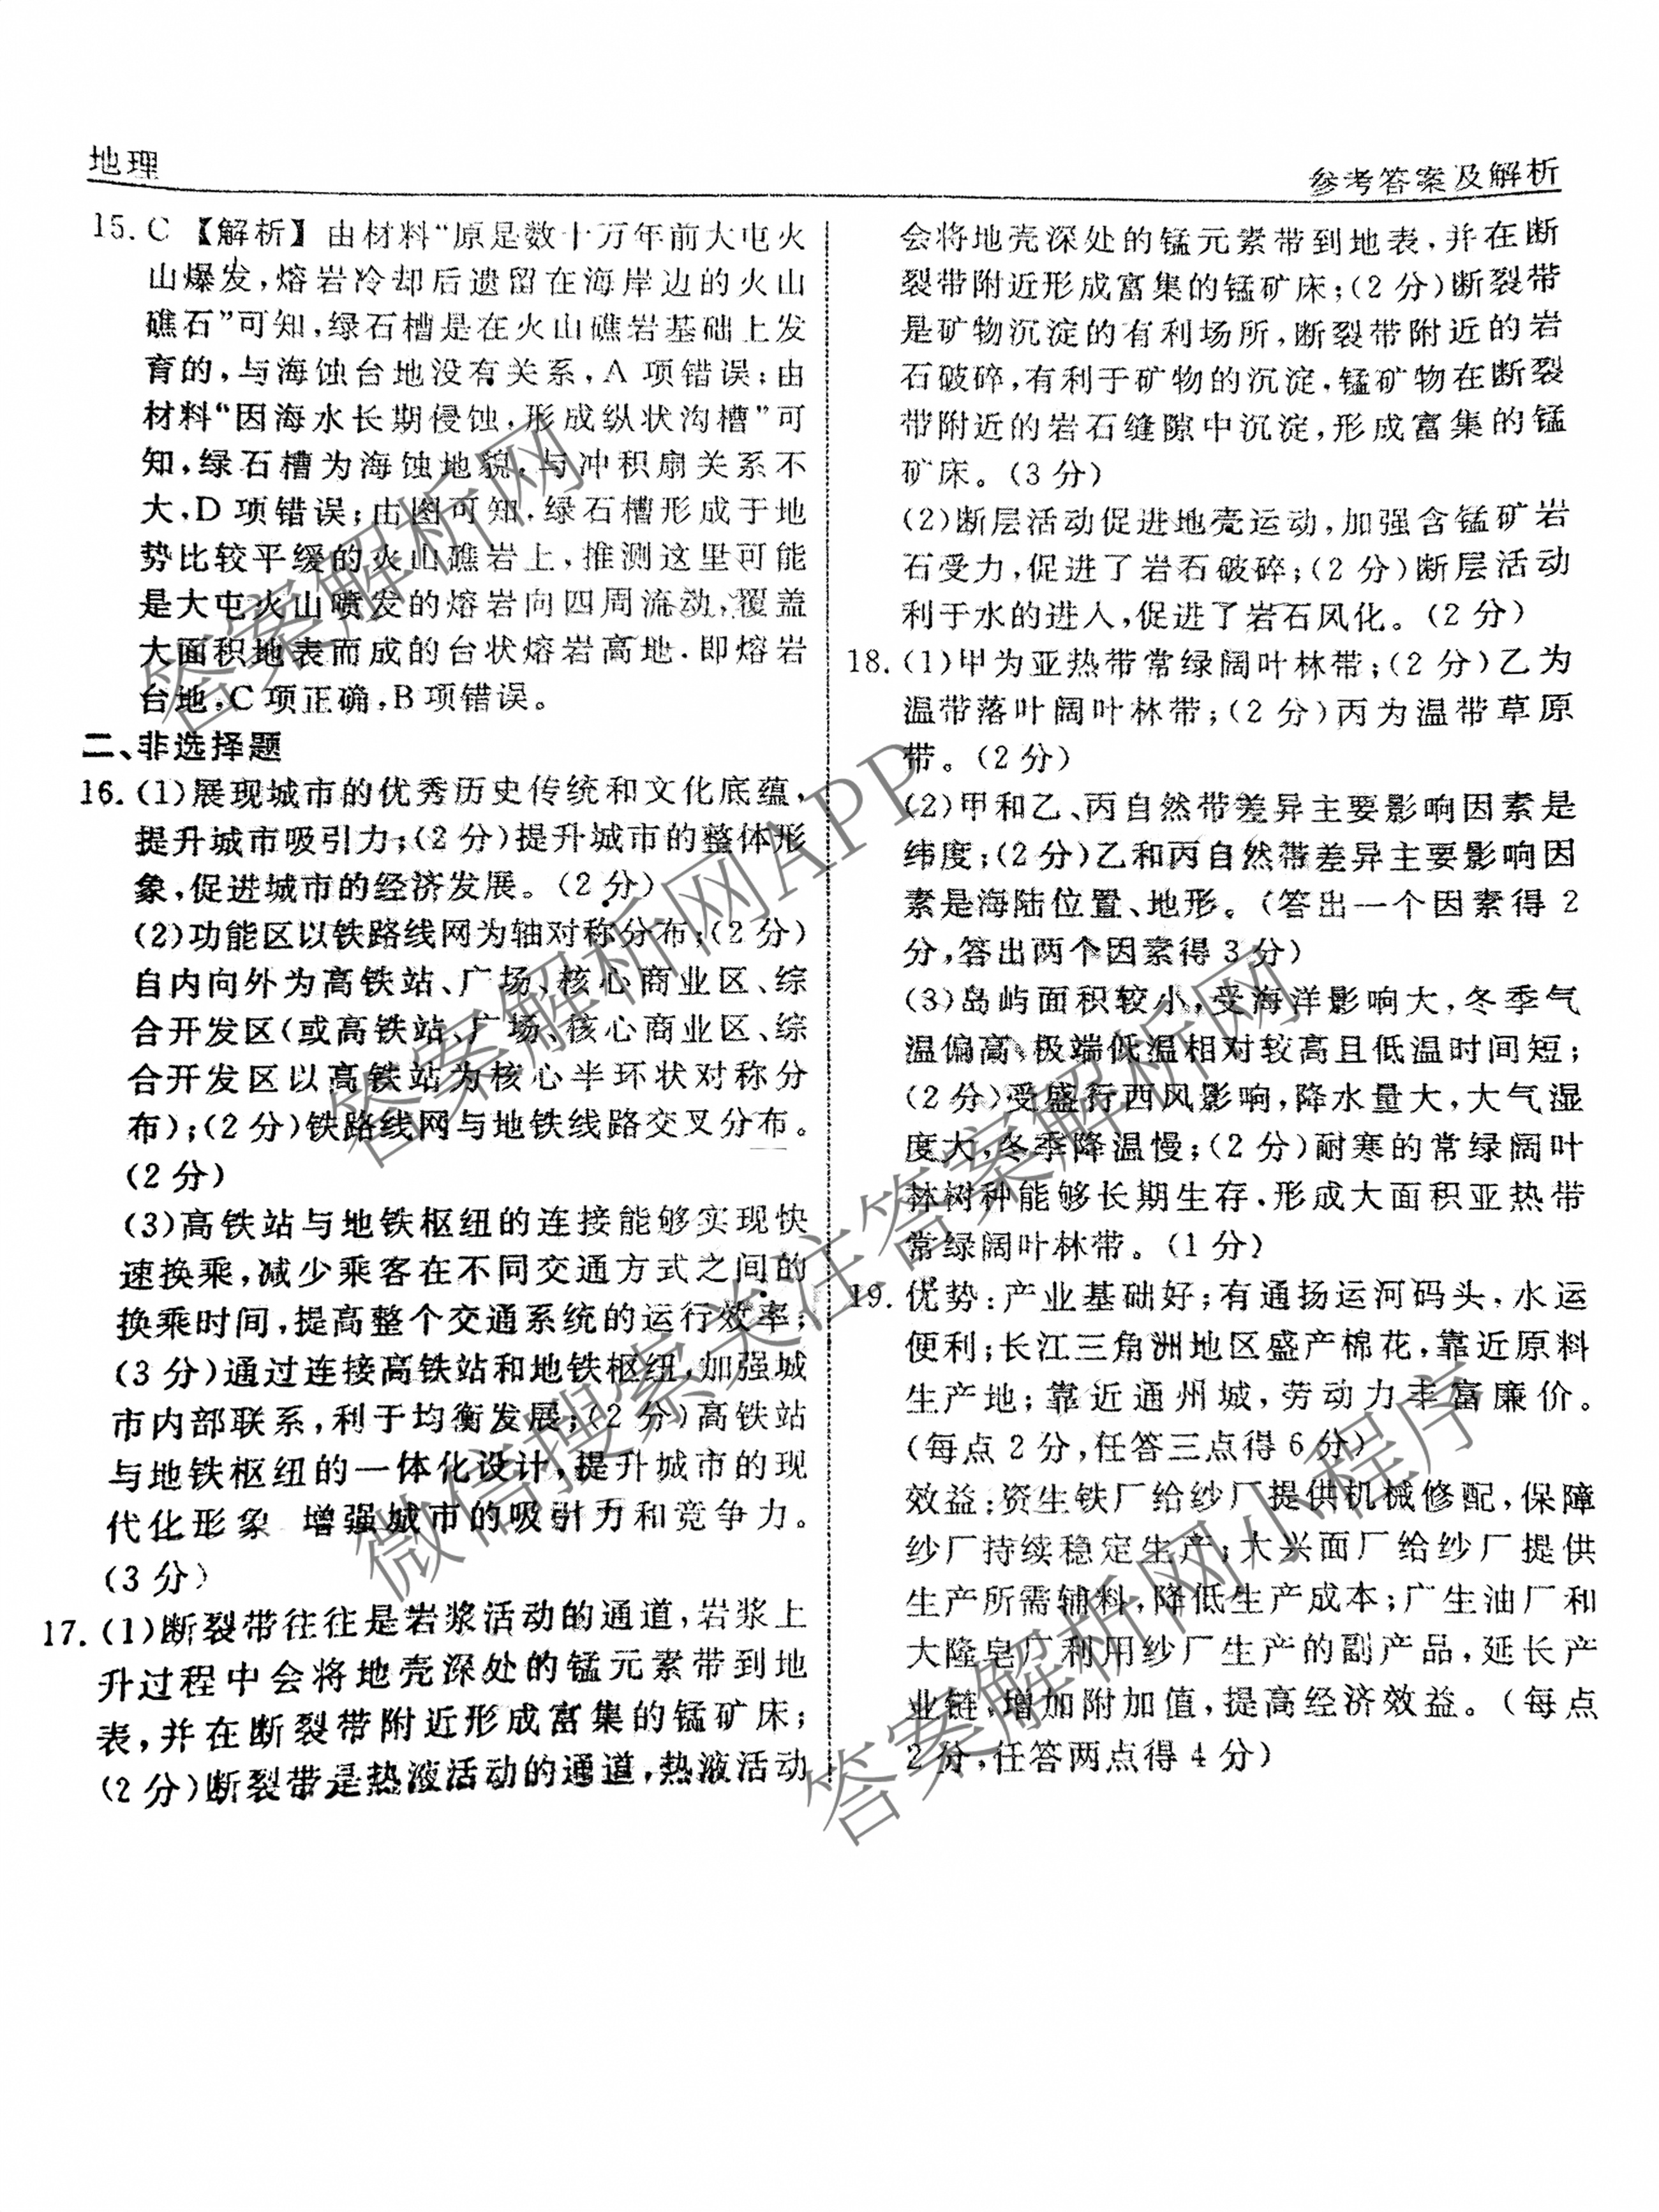 地理
参考答案及解析
15. C 【解析】由材料“原是数十万年前大屯火
山爆发,熔岩冷却后遗留在海岸边的火山
礁石”可知,绿石槽是在火山礁岩基础上发
育的,与海蚀台地没有关系,A 项错误;由
材料“因海水长期侵蚀,形成纵状沟槽”可
知,绿石槽为海蚀地貌,与冲积扇关系不
大,D 项错误;由图可知,绿石槽形成于地
势比较平缓的火山礁岩上,推测这里可能
是大屯火山喷发的熔岩向四周流动,覆盖
大面积地表而成的台状熔岩高地,即熔岩
台地,C 项正确,B 项错误。
二、非选择题
16. (1)展现城市的优秀历史传统和文化底蕴,
提升城市吸引力;(2 分)提升城市的整体形
象,促进城市的经济发展。(2 分)
(2)功能区以铁路线网为轴对称分布;(2 分)
自内向外为高铁站、广场、核心商业区、综
合开发区(或高铁站、广场、核心商业区、综
合开发区以高铁站为核心半环状对称分
布);(2 分)铁路线网与地铁线路交叉分布。
(2 分)
(3)高铁站与地铁枢纽的连接能够实现快
速换乘,减少乘客在不同交通方式之间的
换乘时间,提高整个交通系统的运行效率;
(3 分)通过连接高铁站和地铁枢纽,加强城
市内部联系,利于均衡发展;(2 分)高铁站
与地铁枢纽的一体化设计,提升城市的现
代化形象 增强城市的吸引力和竞争力。
(3 分)
17. (1)断裂带往往是岩浆活动的通道,岩浆上
升过程中会将地壳深处的锰元素带到地
表,并在断裂带附近形成富集的锰矿床;
(2 分)断裂带是热液活动的通道,热液活动
会将地壳深处的锰元素带到地表,并在断
裂带附近形成富集的锰矿床;(2 分)断裂带
是矿物沉淀的有利场所,断裂带附近的岩
石破碎,有利于矿物的沉淀,锰矿物在断裂
带附近的岩石缝隙中沉淀,形成富集的锰
矿床。(3 分)
(2)断层活动促进地壳运动,加强含锰矿岩
石受力,促进了岩石破碎;(2 分)断层活动
利于水的进入,促进了岩石风化。(2 分)
18. (1)甲为亚热带常绿阔叶林带;(2 分)乙为
温带落叶阔叶林带;(2 分)丙为温带草原
带。(2 分)
(2)甲和乙、丙自然带差异主要影响因素是
纬度;(2 分)乙和丙自然带差异主要影响因
素是海陆位置、地形。(答出一个因素得 2
分,答出两个因素得 3 分)
(3)岛屿面积较小,受海洋影响大,冬季气
温偏高、极端低温相对较高且低温时间短;
(2 分)受盛行西风影响,降水量大,大气湿
度大,冬季降温慢;(2 分)耐寒的常绿阔叶
林树种能够长期生存,形成大面积亚热带
常绿阔叶林带。(1 分)
19. 优势:产业基础好;有通扬运河码头,水运
便利;长江三角洲地区盛产棉花,靠近原料
生产地;靠近通州城,劳动力丰富廉价。
(每点 2 分,任答三点得 6 分)
效益:资生铁厂给纱厂提供机械修配,保障
纱厂持续稳定生产;大兴面厂给纱厂提供
生产所需辅料,降低生产成本;广生油厂和
大隆皂厂利用纱厂生产的副产品,延长产
业链,增加附加值,提高经济效益。(每点
2 分,任答两点得 4 分)
答案解析网
答案解析网APP
微信搜索关注答案解析网
答案解析网小程序